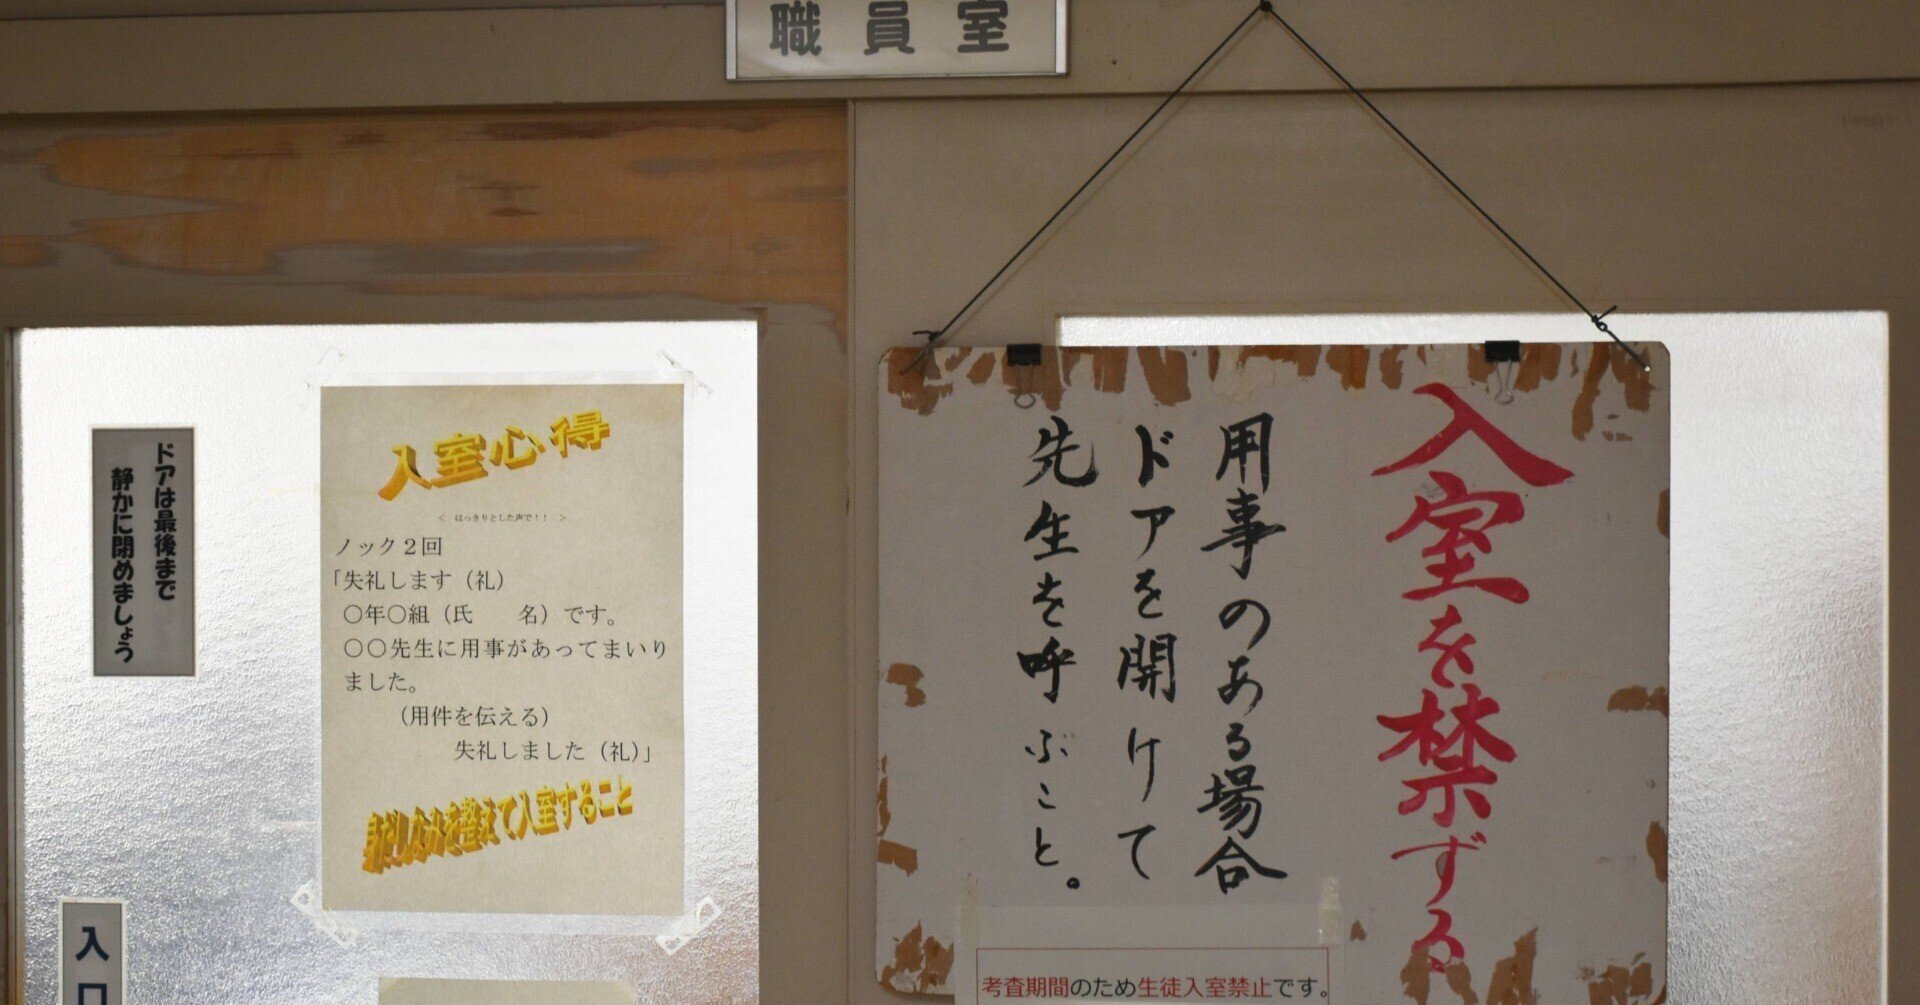 職員室
ドアは最後まで
静かに閉めましょう
入口
入室心得
＜　はっきりとした声で！！　＞
ノック２回
「失礼します（礼）
〇年〇組（氏　　名）です。
〇〇先生に用事があってまいり
ました。
（用件を伝える）
失礼しました（礼）」
身だしなみを整えて入室すること
入室を禁ずる
用事のある場合
ドアを開けて
先生を呼ぶこと。
考査期間のため生徒入室禁止です。